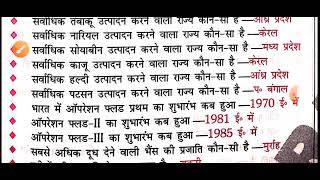 सर्वाधिक तंबाकू उत्पादन करने वाला राज्य कौन-सा है —आंध्र प्रदेश
सर्वाधिक नारियल उत्पादन करने वाला राज्य कौन-सा है —केरल
सर्वाधिक सोयाबीन उत्पादन करने वाला राज्य कौन-सा है —मध्य प्रदेश
सर्वाधिक काजू उत्पादन करने वाला राज्य कौन-सा है —केरल
सर्वाधिक हल्दी उत्पादन करने वाला राज्य कौन-सा है —आंध्र प्रदेश
सर्वाधिक पटसन उत्पादन करने वाला राज्य कौन-सा है —प० बंगाल
भारत में ऑपरेशन फ्लड प्रथम का शुभारंभ कब हुआ —1970 ई० में
ऑपरेशन फ्लड–II का शुभारंभ कब हुआ —1981 ई० में
ऑपरेशन फ्लड–III का शुभारंभ कब हुआ —1985 ई० में
सबसे अधिक दूध देने वाली भैंस की प्रजाति कौन-सी है —मुर्राह